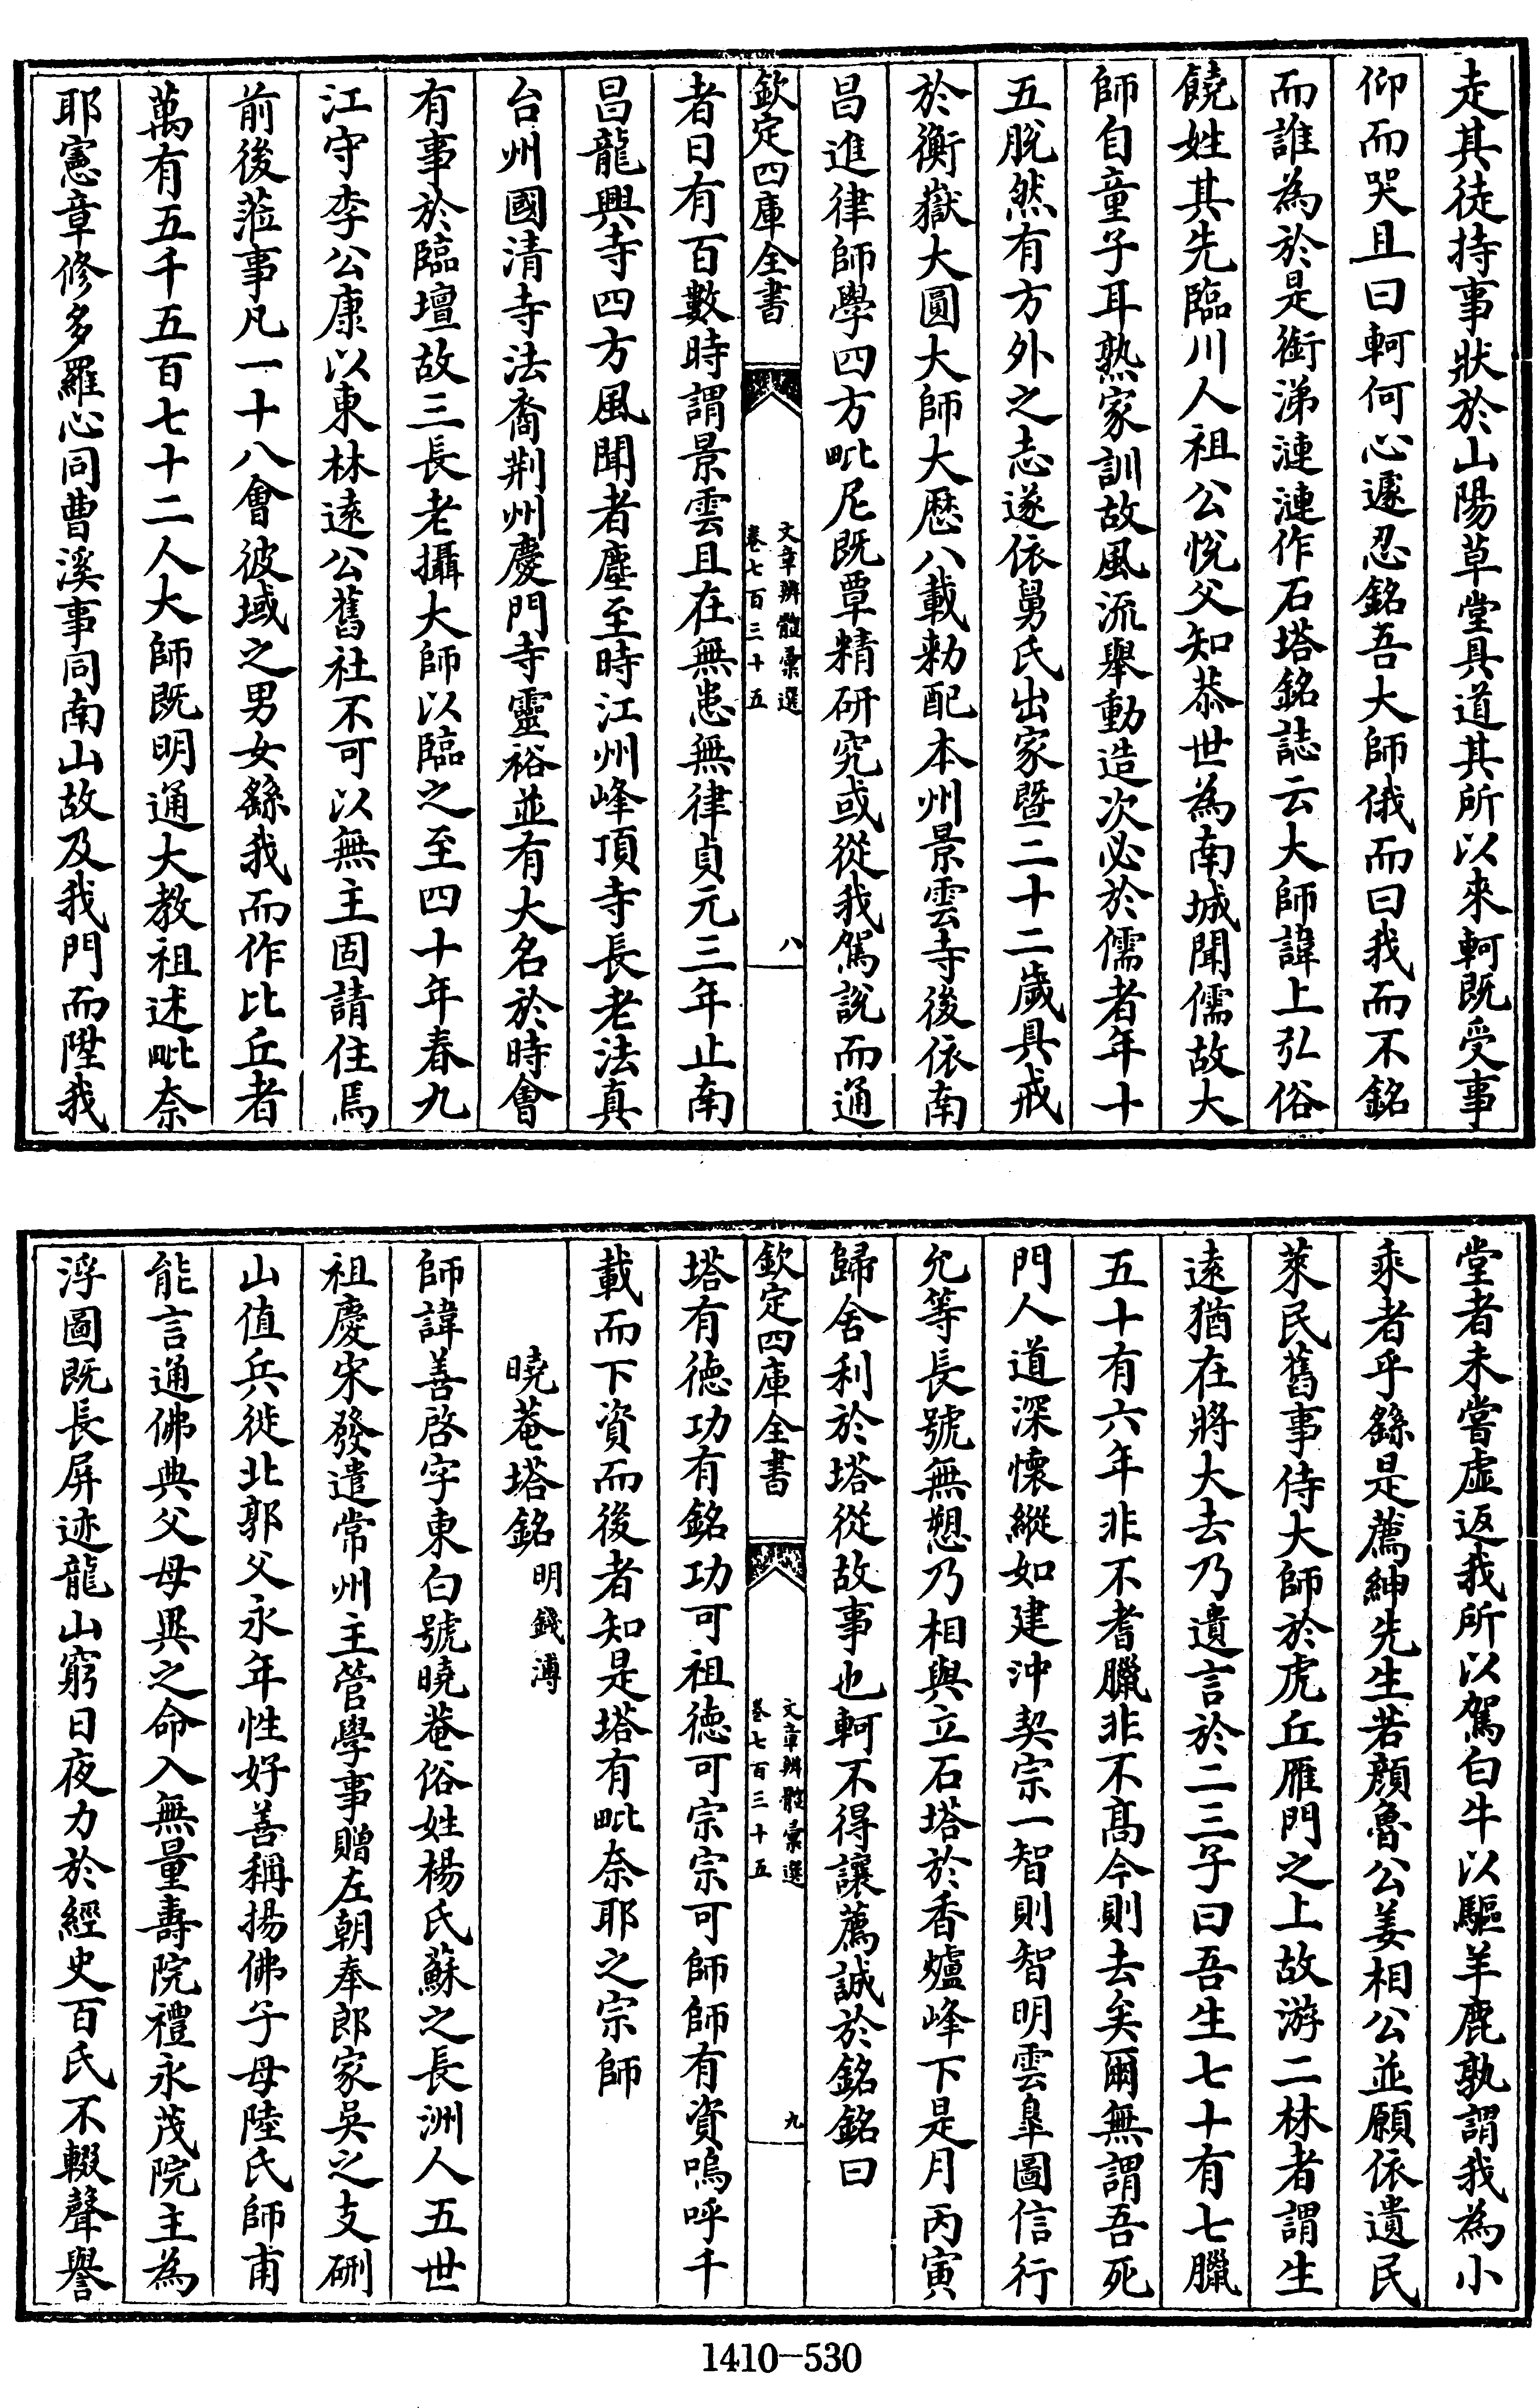 走其徒持事狀於山陽草堂具道其所以來軻既受事
仰而哭且曰軻何心遽忍銘吾大師俄而曰我而不銘
而誰為於是銜涕漣漣作石塔銘誌云大師諱上弘俗
饒姓其先臨川人祖公悅父知恭世為南城聞儒故大
師自童子耳熟家訓故風流舉動造次必於儒者年十
五脫然有方外之志遂依舅氏出家暨二十二歲具戒
於衡嶽大圓大師大厯八載勑配本州景雲寺後依南
昌進律師學四方毗尼既覃精研究或從我駕說而通
欽定四庫全書
文章辨體彚選
卷七百三十五
八
者日有百數時謂景雲且在無患無律貞元三年止南
昌龍興寺四方風聞者塵至時江州峰頂寺長老法真
台州國清寺法裔荆州慶門寺靈裕並有大名於時會
有事於臨壇故三長老攝大師以臨之至四十年春九
江守李公康以東林遠公舊社不可以無主固請住焉
前後蒞事凡一十八會彼域之男女繇我而作比丘者
萬有五千五百七十二人大師既明通大教祖述毗奈
耶憲章修多羅心同曹溪事同南山故及我門而陞我
堂者未嘗虛返我所以駕白牛以驅羊鹿孰謂我為小
乘者乎繇是薦紳先生若顏魯公姜相公並願依遺民
萊民舊事侍大師於虎丘雁門之上故游二林者謂生
遠猶在將大去乃遺言於二三子曰吾生七十有七臘
五十有六年非不耆臘非不髙今則去矣爾無謂吾死
門人道深懷縱如建沖契宗一智則智明雲臯圖信行
允等長號無愬乃相與立石塔於香爐峰下是月丙寅
歸舍利於塔從故事也軻不得讓薦誠於銘銘曰
欽定四庫全書
文章辨體彚選
卷七百三十五
九
塔有德功有銘功可祖德可宗宗可師師有資嗚呼千
載而下資而後者知是塔有毗奈耶之宗師
曉菴塔銘明錢溥
師諱善啓字東白號曉菴俗姓楊氏蘇之長洲人五世
祖慶宋發遣常州主管學事贈左朝奉郎家吳之支硎
山值兵徙北郭父永年性好善稱揚佛子母陸氏師甫
能言通佛典父母異之命入無量壽院禮永茂院主為
浮圖既長屏迹龍山窮日夜力於經史百氏不輟聲譽
1410-530